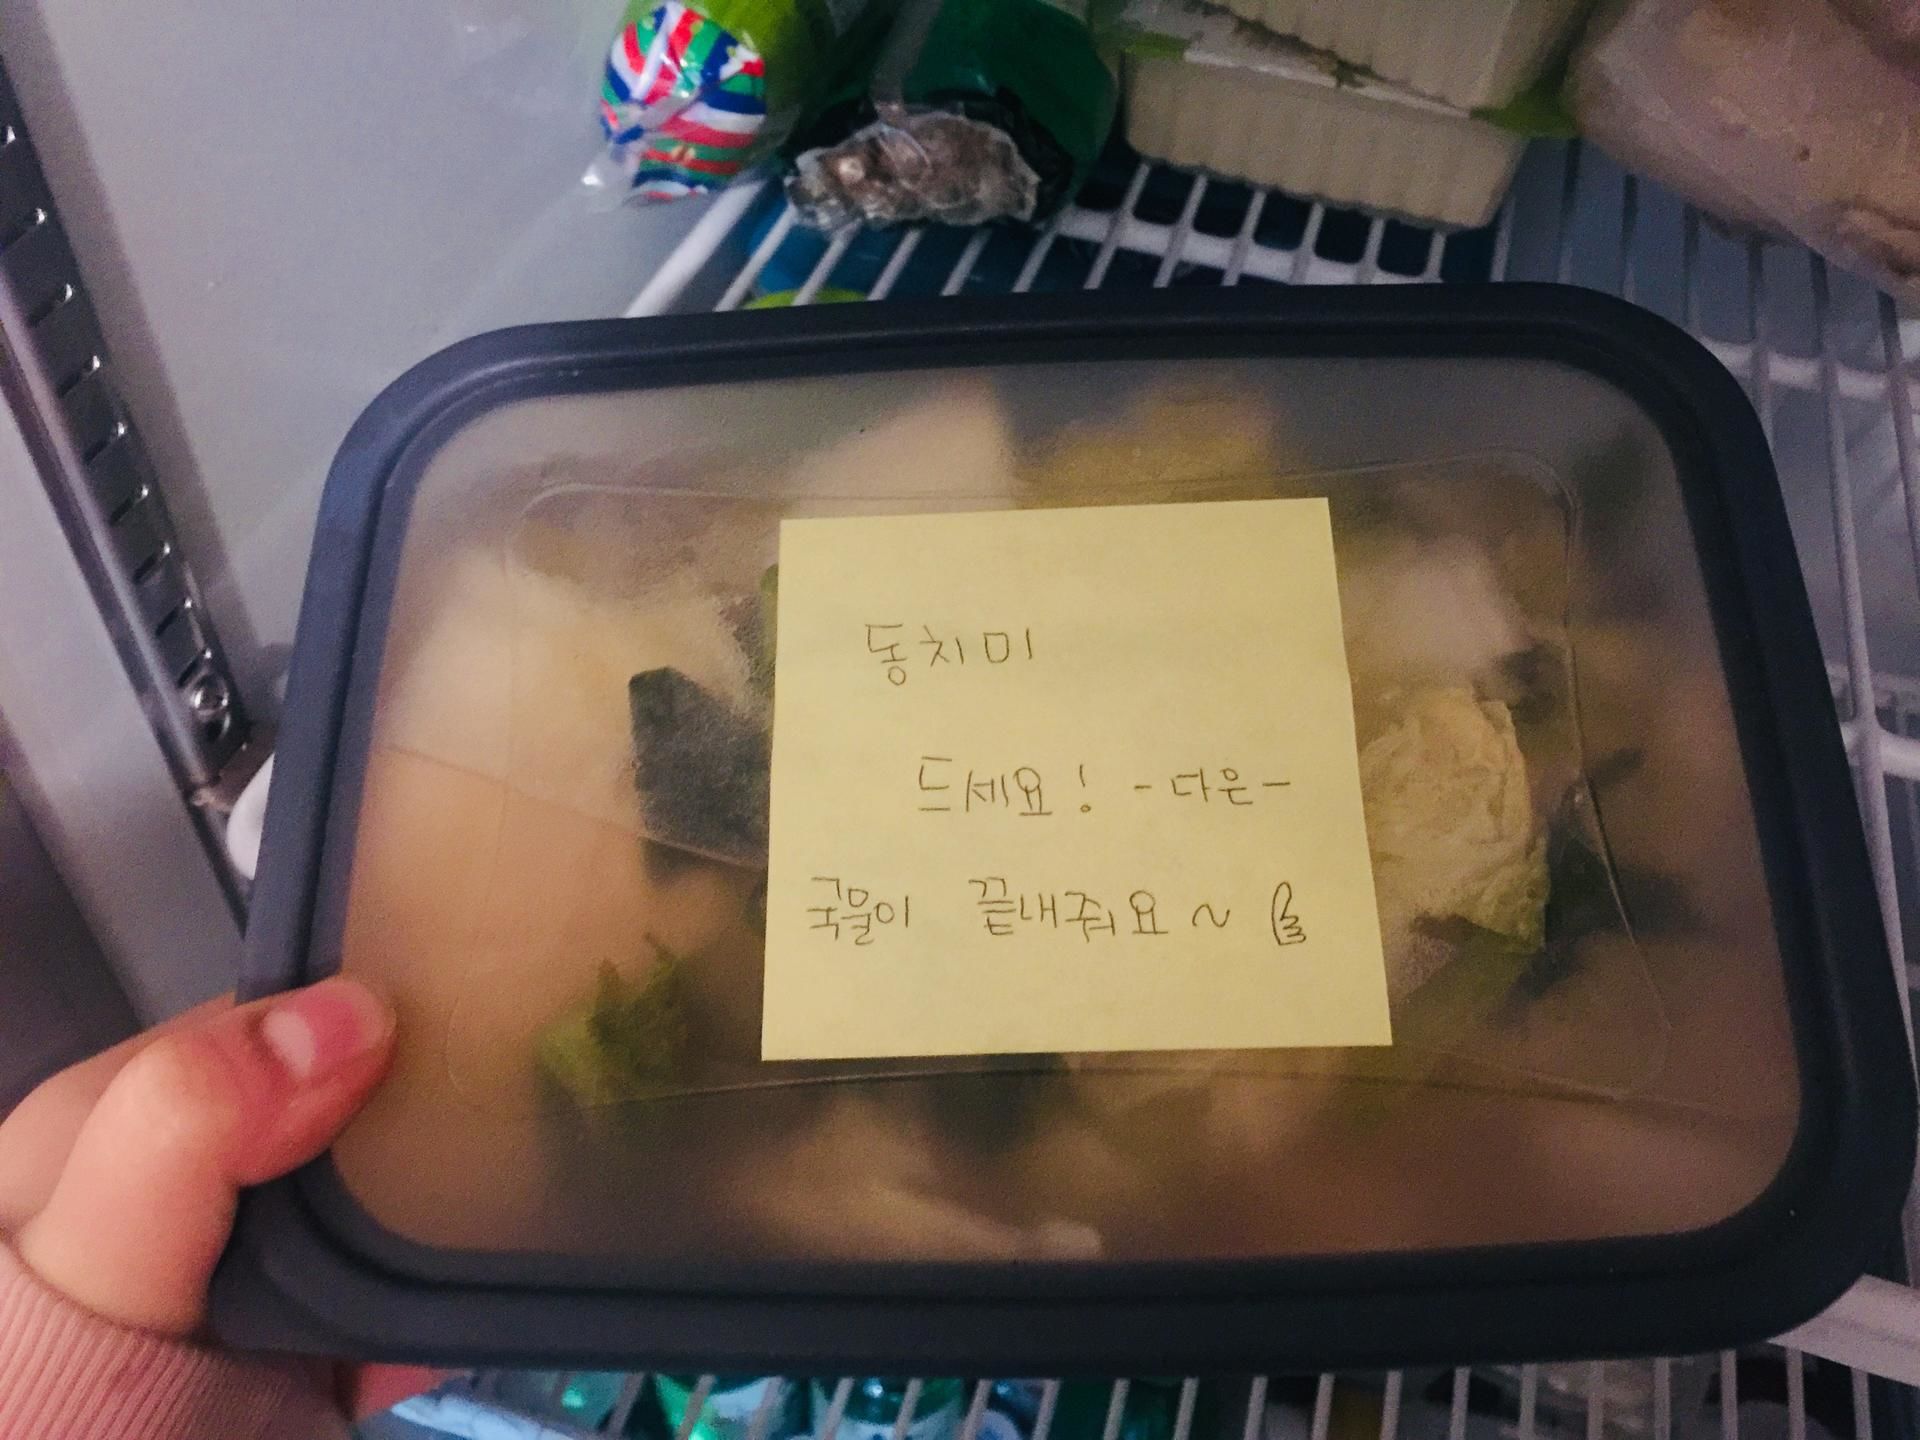 동치미
드세요! -다은-
국물이 끝내줘요~